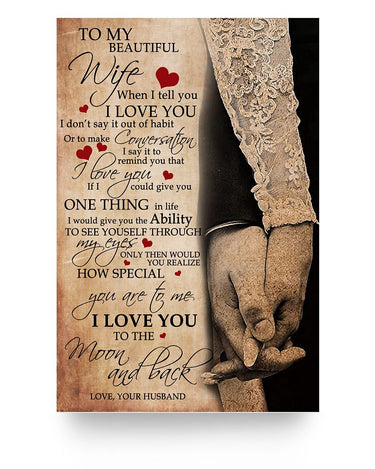 TO MY
BEAUTIFUL
Wife
When I tell you
I LOVE YOU
I don't say it out of habit
Or to make Conversation
I say it to
remind you that
I love you
If I could give you
ONE THING in life
I would give you the Ability
TO SEE YOUSELF THROUGH
my eyes
ONLY THEN WOULD
YOU REALIZE
HOW SPECIAL
you are to me
I LOVE YOU
TO THE
Moon
and back
LOVE, YOUR HUSBAND